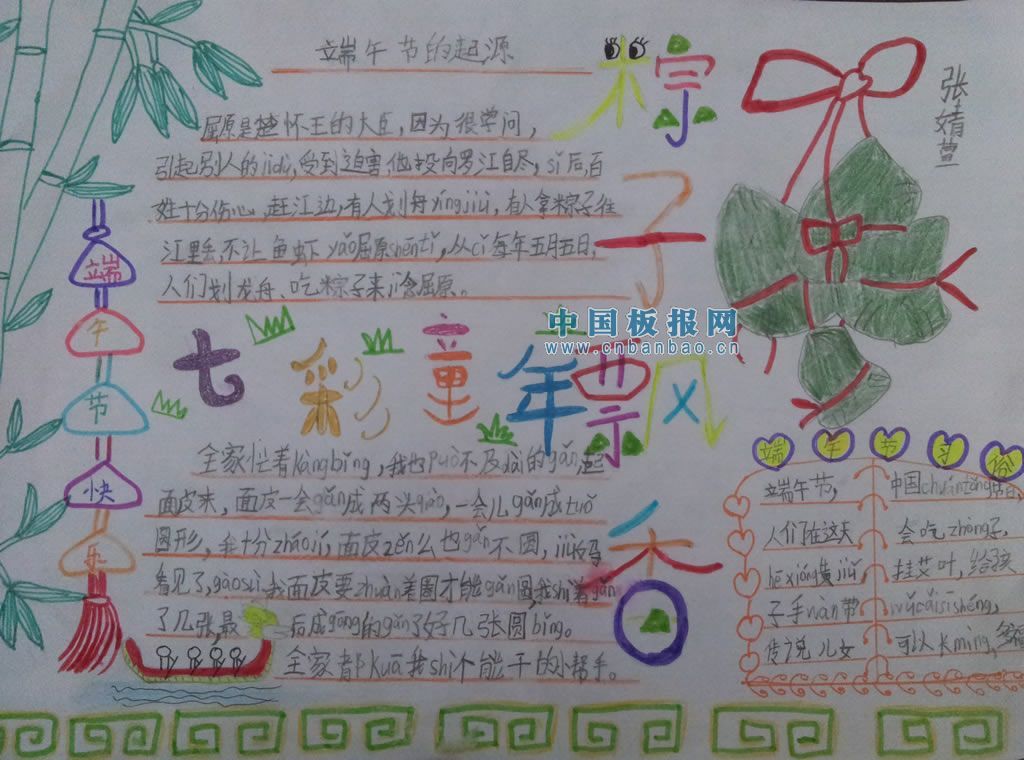 端午节的起源
粽子飘香
张婧萱
屈原是楚怀王的大臣，因为很学问，
引起别人的jídù，受到迫害，他投向罗江自尽，sǐ后，百
姓十分伤心，赶江边，有人划舟xíngjiù，有人拿粽子往
江里丢，不让鱼虾yǎo屈原shēntǐ，从cǐ每年五月五日，
人们划龙舟、吃粽子来jì念屈原。
中国板报网
www.cnbanbao.cn
端午节快乐
七彩童年
全家忙着kàngbǐng，我也può不及dài的gǎn起
面皮来，面皮一会gǎn成两头，一会儿gǎn成tuǒ
圆形，我十分zhāojí，面皮zěn么也gǎn不圆，妈
看见了，gàosù我面皮要zhuàn着圈才能gǎn圆，我shì着gǎn
了几张，最后成gōng的gǎn了好几张圆bǐng。
全家都kuā我shì个能干的小帮手。
端午节习俗
端午节，
人们在这天
hē xióng黄jiǔ
子手wàn带
传说儿女
中国chuántǒng节日，
会吃zhòng子，
挂艾叶，给孩
wǔcǎisīshéng，
可以